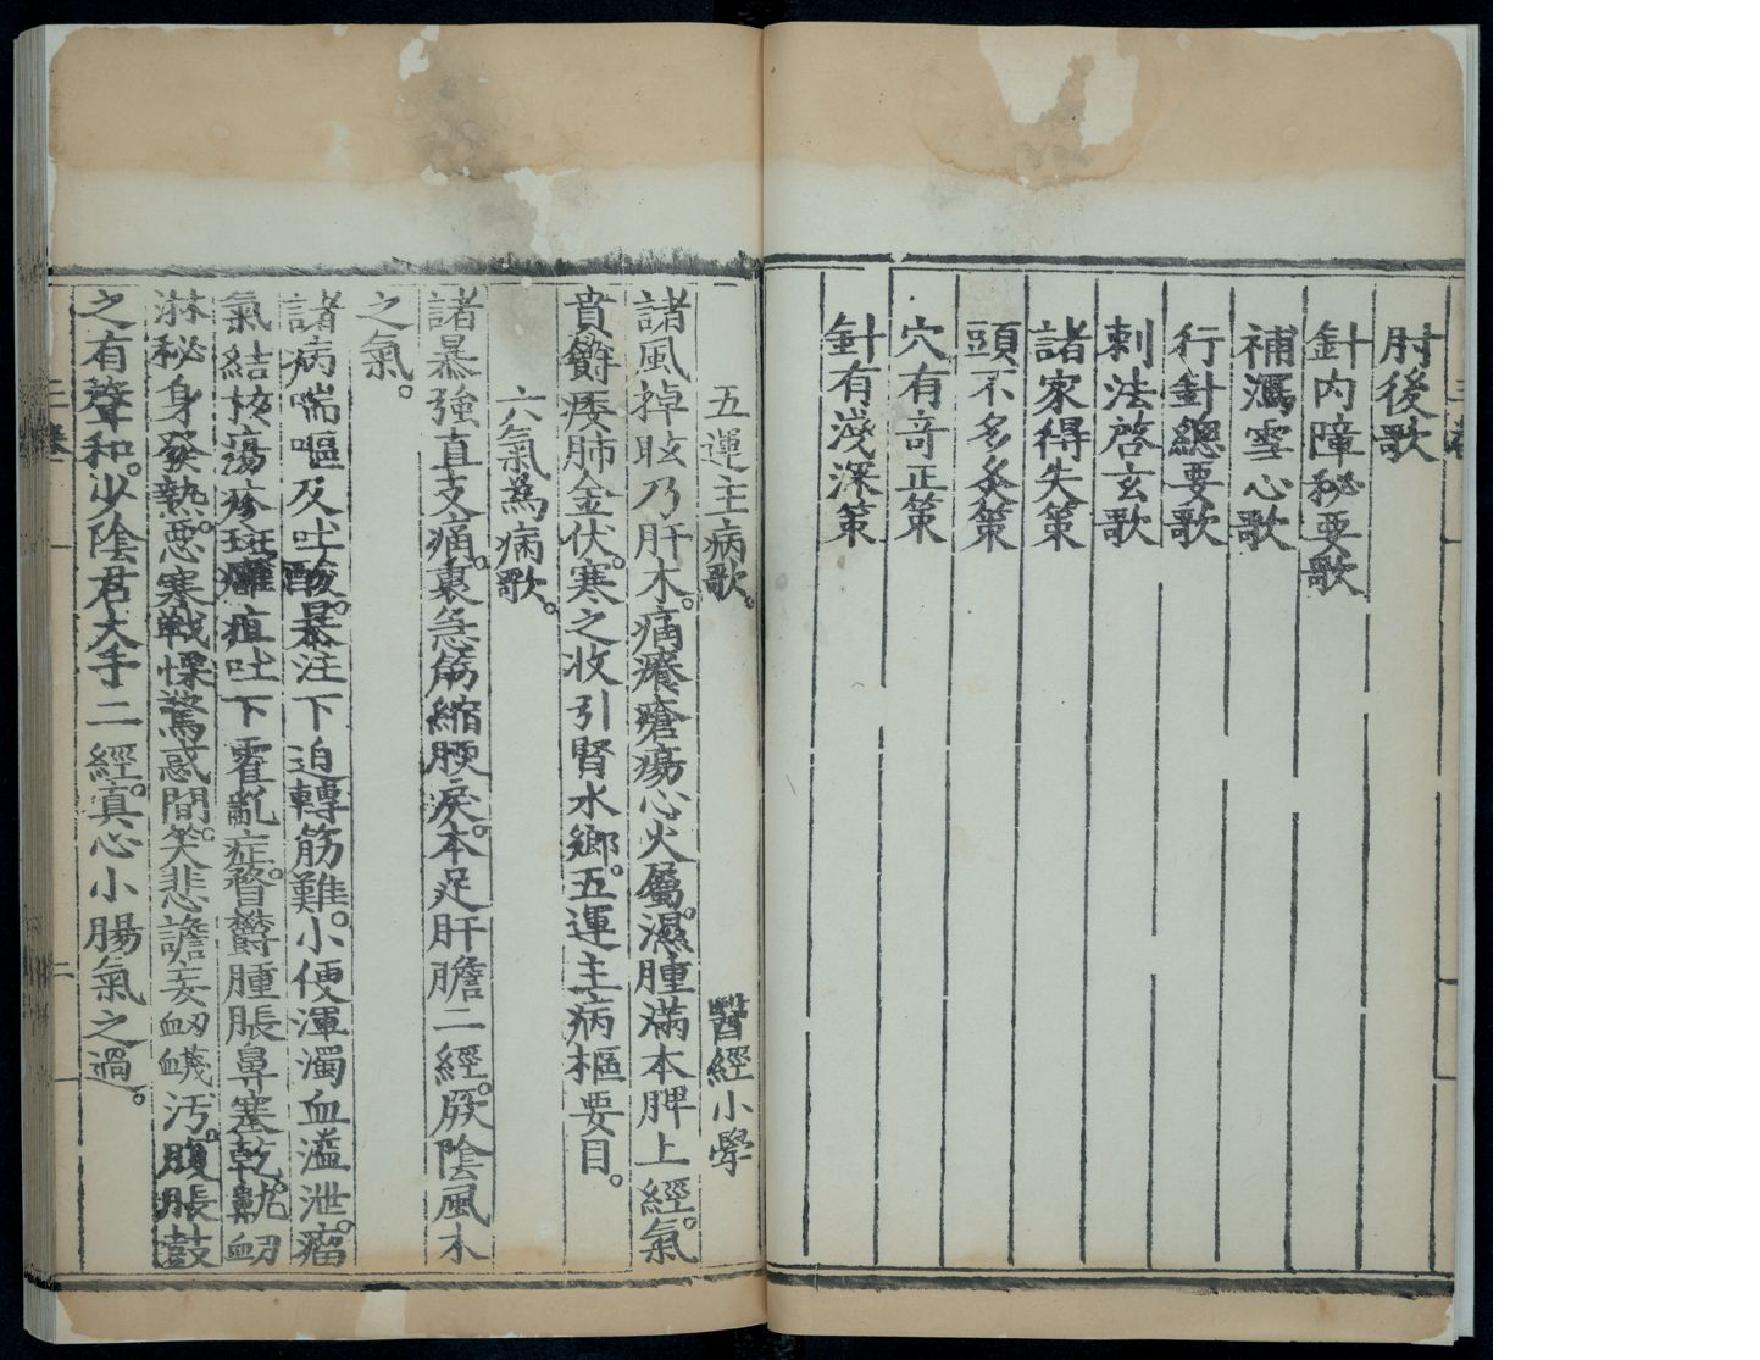 肘後歌
針内障秘要歌
補瀉雪心歌
行針總要歌
刺法啓玄歌
諸家得失策
頭不多灸策
穴有竒正策
針有淺深策
五運主病歌。 醫經小學
諸風掉眩乃肝木。痛癢瘡瘍心火屬。濕腫滿本脾土經。氣
賁欝痿肺金伏。寒之收引腎水鄉。五運主病樞要目。
六氣為病歌。
諸暴強直支痛。裏急筋縮腰戾。本足肝膽二經。厥陰風木
之氣。
諸病喘嘔及吐酸。暴注下迫轉筋難。小便渾濁血溢泄。瘤
氣結核瘍疹斑。癰疽吐下霍亂症。瞀欝腫脹鼻塞乾。鼽衂
淋秘身發熱。惡寒戰慄驚惑間。笑悲譫妄衂衊汚。腹脹鼓
之有聲和。少陰君火手二經。真心小腸氣之過。
二